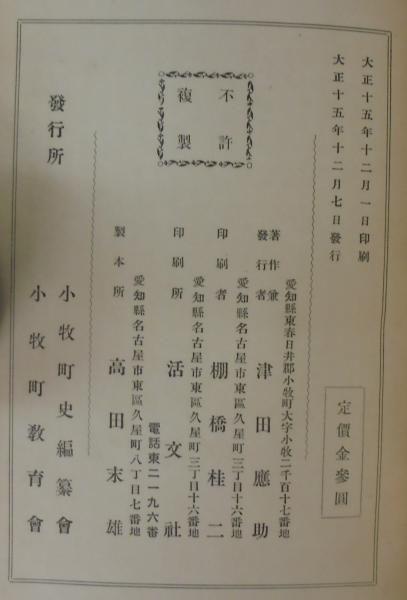 大正十五年十二月一日印刷
大正十五年十二月七日發行
定價金參圓
不許
複製
愛知縣東春日井郡小牧町大字小牧二千百十七番地
著作兼
發行者
津田應助
愛知縣名古屋市東區久屋町三丁目十六番地
印刷者
棚橋桂二
愛知縣名古屋市東區久屋町三丁目十六番地
印刷所
活文社
電話東二一九六番
愛知縣名古屋市東區久屋町八丁目七番地
製本所
高田末雄
發行所
小牧町史編纂會
小牧町教育會